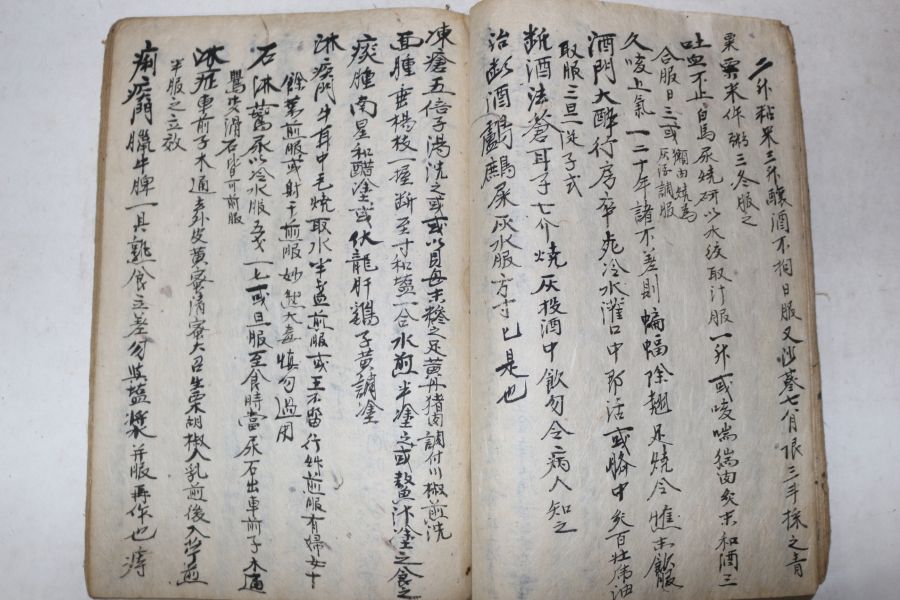 二升粘米三升釀酒不拘日服又沙蔘七月限三年採之青
粟粟米作粥三冬服之
吐血不止白馬尿燒研以水絞取汁服一升或咳喘猯肉炙末和酒三
合服日三或獺肉燒爲灰淫調服
久咳上氣一二十年諸不差則蝙蝠除翅足燒令焦末飮服
酒門大醉行房卒死冷水灌口中卽活或臍中灸百壯麻油
取服三旦一從子式
斷酒法蒼耳子七介燒灰投酒中飮勿令病人知之
治嗜酒鸕鶿屎灰水服方寸匕是也
凍瘡五倍子湯洗之或以貝母末糝之足黃丹猪脂調付川椒煎洗
面腫垂楊枝一握斷至寸和鹽一合水煎半塗之或鰲汁塗之食之
痰腫南星和醋塗或伏龍肝鷄子黃調塗
淋疾門牛耳中毛燒取水半盞煎服或王不留行煎服有婦女十
餘葉煎服或射干煎服妙然大毒慎勿過用
石淋鷰屎以冷水服五戔一匕或旦服至食時當尿石出車前子木通
瞿麥滑石皆可煎服
淋症車前子木通赤皮黃蜜淸蜜大召生栗胡椒人乳煎後入芐煎
半服之立效
痢疾門臘牛脾一具熟食立差勿與鹽漿幷服再作也滯